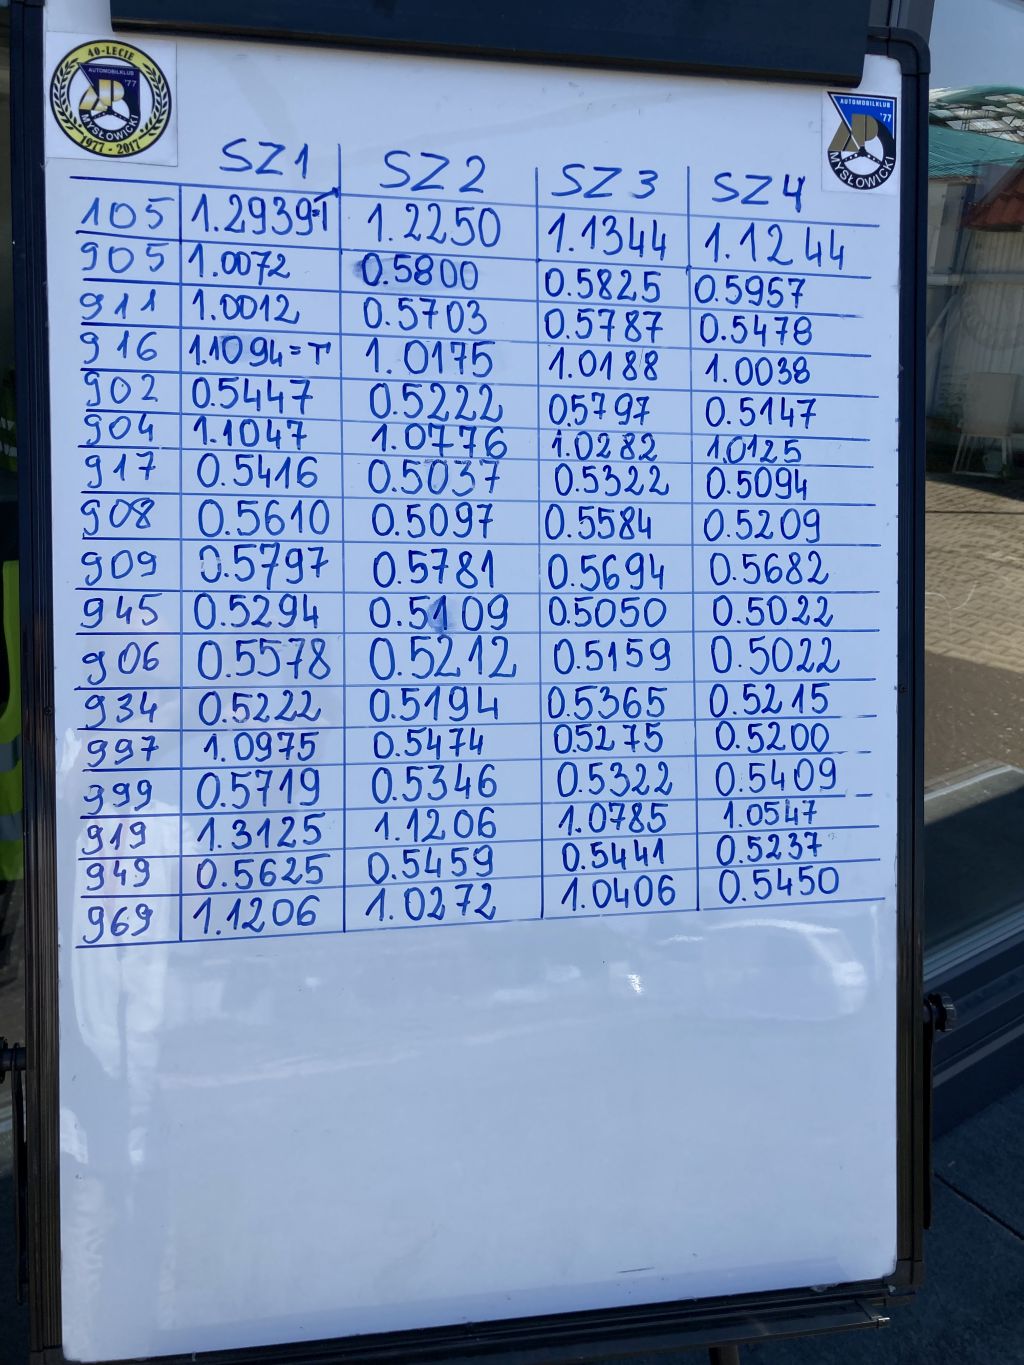 40-LECIE
AUTOMOBILKLUB
'77
MYSŁOWICKI
1977 - 2017
AUTOMOBILKLUB
'77
MYSŁOWICKI
SZ1 SZ2 SZ3 SZ4
105 1.2939=T 1.2250 1.1344 1.1244
905 1.0072 0.5800 0.5825 0.5957
911 1.0012 0.5703 0.5787 0.5478
916 1.1094=T 1.0175 1.0188 1.0038
902 0.5447 0.5222 0.5797 0.5147
904 1.1047 1.0776 1.0282 1.0125
917 0.5416 0.5037 0.5322 0.5094
908 0.5610 0.5097 0.5584 0.5209
909 0.5797 0.5781 0.5694 0.5682
945 0.5294 0.5109 0.5050 0.5022
906 0.5578 0.5212 0.5159 0.5022
934 0.5222 0.5194 0.5365 0.5215
997 1.0975 0.5474 0.5275 0.5200
999 0.5719 0.5346 0.5322 0.5409
919 1.3125 1.1206 1.0785 1.0547
949 0.5625 0.5459 0.5441 0.5237
969 1.1206 1.0272 1.0406 0.5450